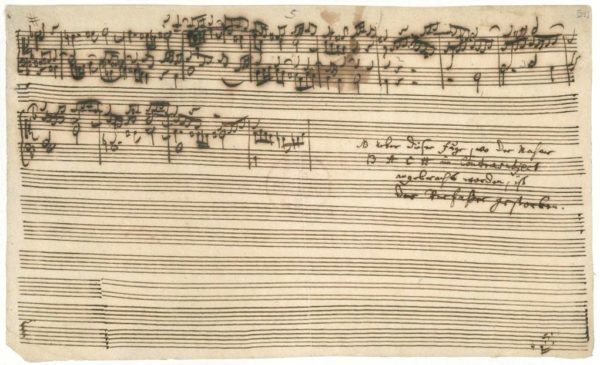 5
NB ueber dieser Fuge, wo der Nahme
B A C H im Contrasubject
angebracht worden, ist
der Verfaßer gestorben.